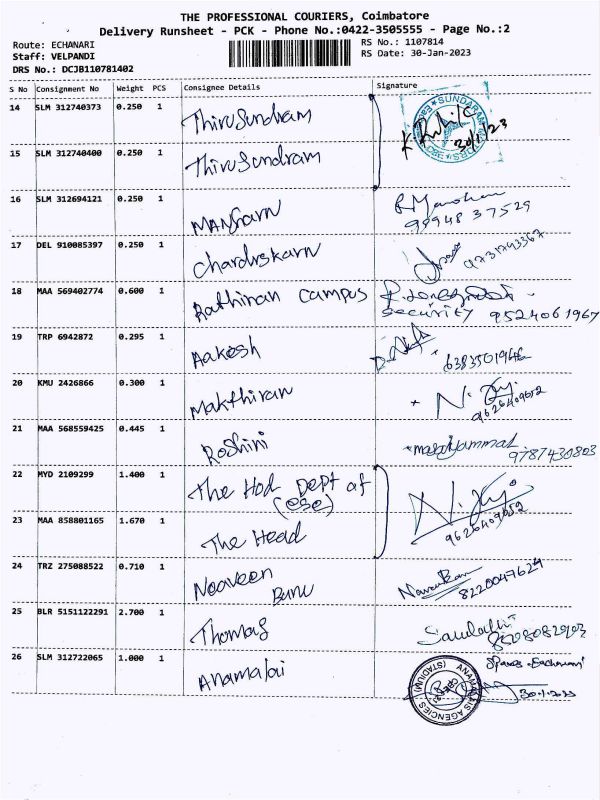 THE PROFESSIONAL COURIERS, Coimbatore
Delivery Runsheet - PCK - Phone No.:0422-3505555 - Page No.:2
Route: ECHANARI
RS No.: 1107814
Staff: VELPANDI
RS Date: 30-Jan-2023
DRS No.: DCJB110781402
S No Consignment No Weight PCS Consignee Details Signature
14 SLM 312740373 0.250 1 Thirusundram
30/1/23
15 SLM 312740400 0.250 1 Thirusundram
16 SLM 312694121 0.250 1
99948 37529
17 DEL 910085397 0.250 1 9731743367
18 MAA 569402774 0.600 1 Rathinan campus
security 9524061967
19 TRP 6942872 0.295 1 Aakesh
20 KMU 2426866 0.300 1 Makthiran
9626409652
21 MAA 568559425 0.445 1 Roshini
9787430803
22 MYD 2109299 1.400 1 The Hod Dept of
(ese)
23 MAA 858801165 1.670 1 The Head
9626409652
24 TRZ 275088522 0.710 1 Naaveen
Banu 8220047624
25 BLR 5151122291 2.700 1 Thomas
26 SLM 312722065 1.000 1 Anamalai
ANAMALAIS AGENCIES (STADIUM)
30.1.2023